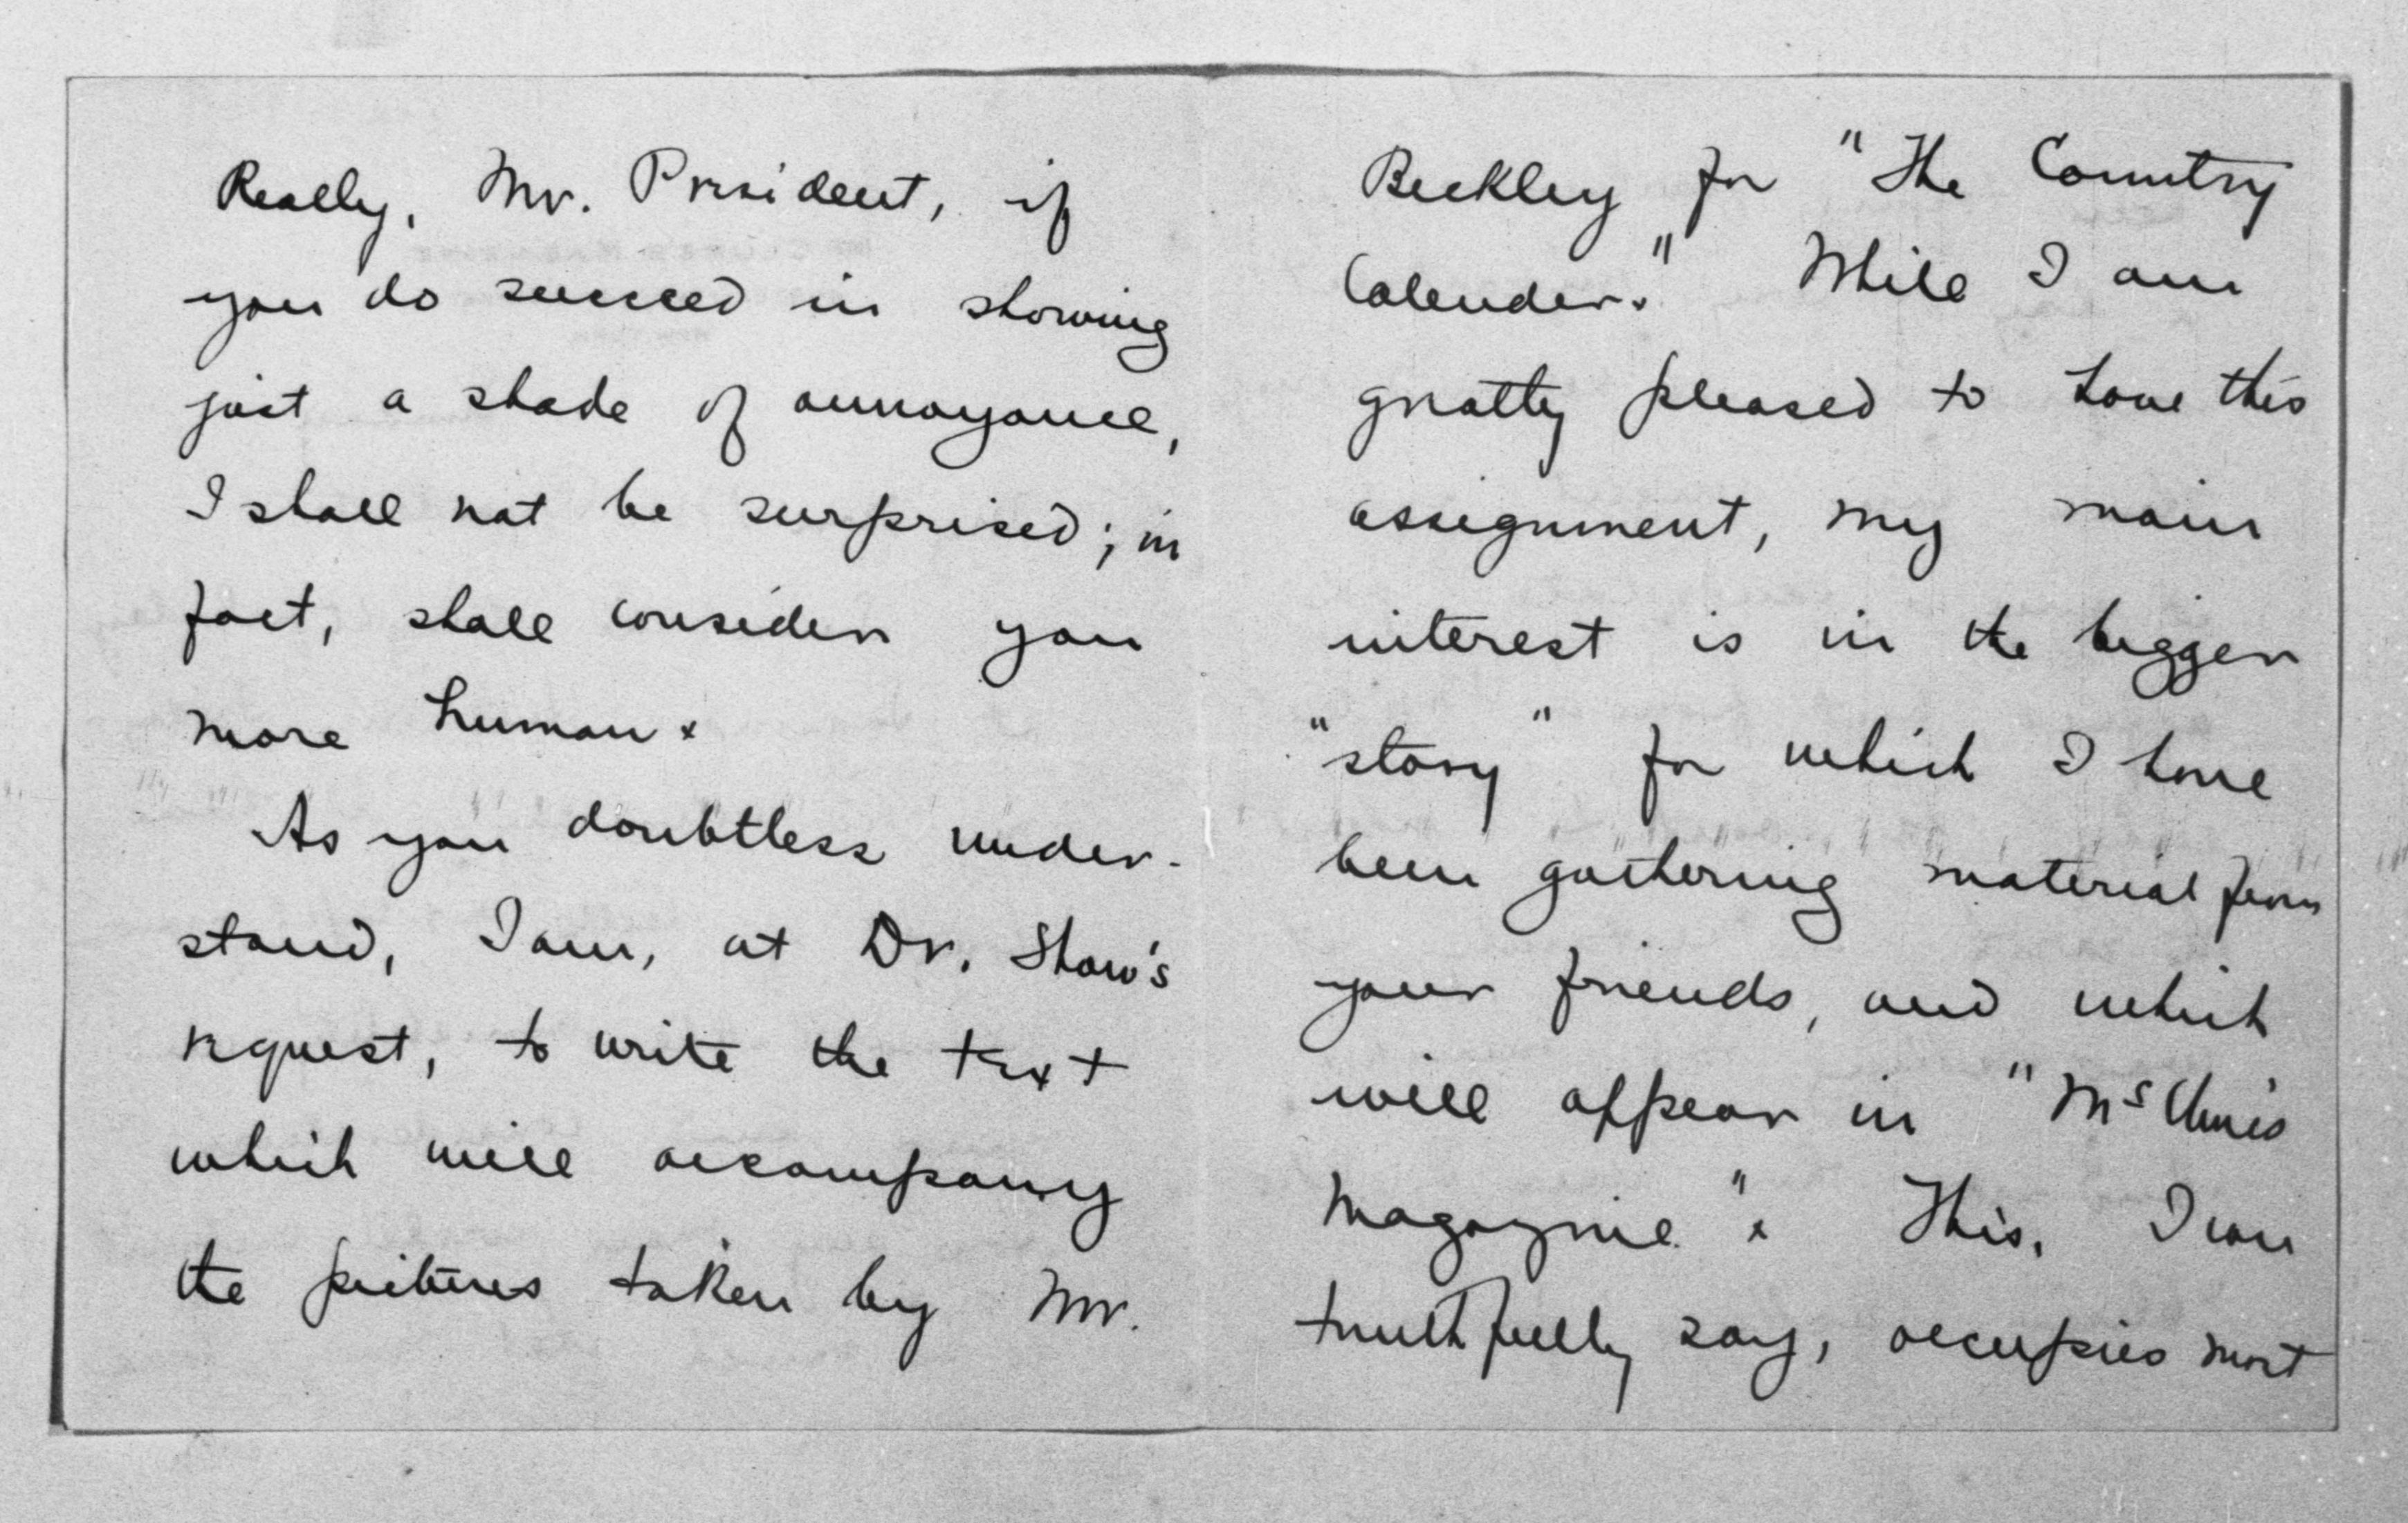 Really, Mr. President, if
you do succeed in showing
just a shade of annoyance,
I shall not be surprised; in
fact, shall consider you
more human x
As you doubtless under-
stand, I am, at Dr. Shaw's
request, to write the text
which will accompany
the pictures taken by Mr.
Beckley for "The Country
Calender." While I am
greatly pleased to have this
assignment, my main
interest is in the bigger
"story" for which I have
been gathering material from
your friends, and which
will appear in "McClure's
Magazine" x This, I can
truthfully say, occupies most